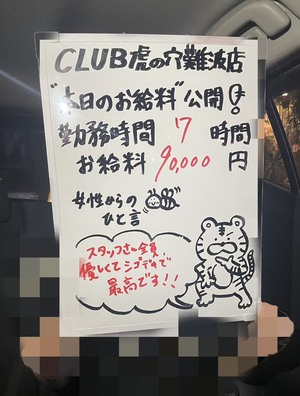 CLUB虎の穴難波店
"本日のお給料"公開!
勤務時間 7 時間
お給料 90,000 円
女性からの
ひと言
スタッフさん全員
優しくてシゴデキで
最高です!!